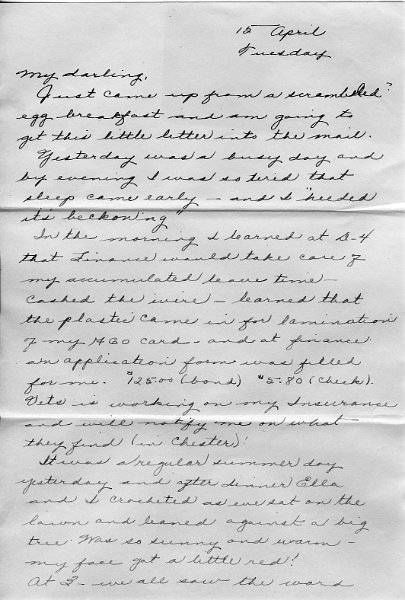 15 April
Tuesday
My darling,
Just came up from a scrambled?
egg breakfast and am going to
get this little letter into the mail.
Yesterday was a busy day and
by evening I was so tired that
sleep came early - and I "heeded
its beckoning"
In the morning I learned at B-4
that Finance would take care of
my accumulated leave time -
Cashed the wire - learned that
the plastic came in for lamination
of my AGO card - and at finance
an application form was filled
for me. $125.00 (bond) $5.80 (check).
Vets is working on my Insurance
and will notify me on what
they find (in Chester)!
It was a regular summer day
yesterday and after dinner Ella
and I crocheted as we sat on the
lawn and leaned against a big
tree. Was so sunny and warm -
my face got a little red!
At 7 - we all saw the ward